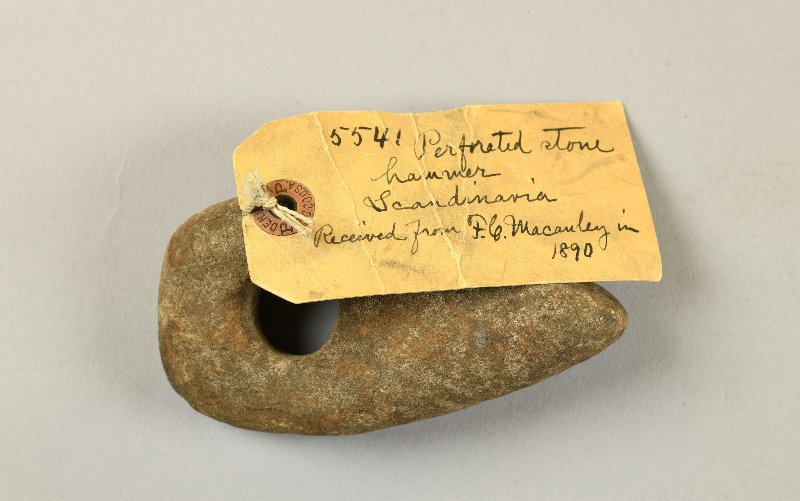 5541 Perforated stone
hammer
Scandinavia
Received from F.C. Macauley in
1890